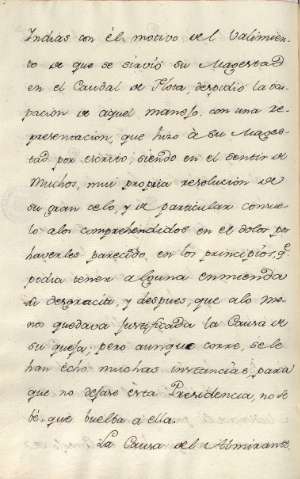 Indias con él motivo del Valimien-
to de que se sirvió su Magestad
en el Caudal de Flota, despidió la ocu-
pacion de aquel manejo, con una re-
presentacion, que hizo à su Mages-
tad por escrito; siendo en el sentir de
muchos, mui propria resolucion de
su gran celo, y de particular consue-
lo alos comprehendidos en el dolor por
haverles parecido, en los principios, q.e
podia tener alguna enmienda
su desgracia, y despues, que alo me-
nos quedava justificada la Causa de
su queja, pero aunque corre, se le
han echo muchas instancias, para
que no dejase ésta Presidencia, no se
bé, que buelba a ella.
La Causa del Almirante